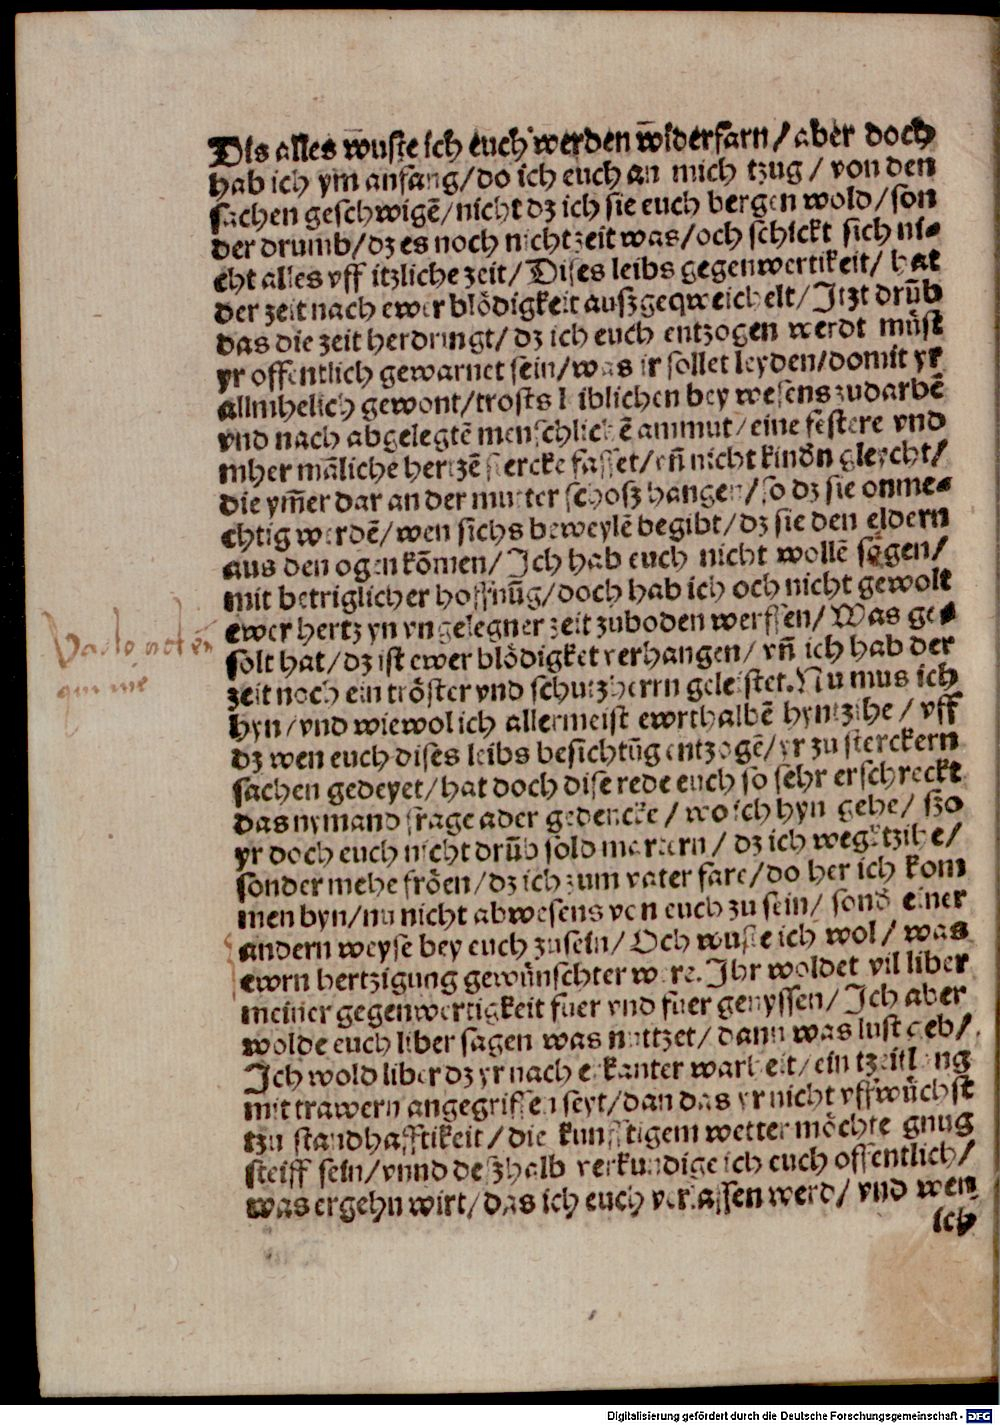 Dis alles wuste ich euch werden widerfarn / aber doch
hab ich ym anfang / do ich euch an mich tzug / von den
sachen geschwigē / nicht dz ich sie euch bergen wold / son
der drumb / dz es noch nicht zeit was / och schickt sich ni⸗
cht alles vff itzliche zeit / Dises leibs gegenwertikeit / hat
der zeit nach ewer blödigkeit auszgeqweichelt / Jtzt drūb
das die zeit herdringt / dz ich euch entzogen werdt müst
yr offentlich gewarnet sein / was ir sollet leyden / domit yr
allmhelich gewont / trosts liblichen bey wesens zudarbē
vnd nach abgelegtē menschlichē ammut / eine festere vnd
mher māliche hertzē stercke fasset / vn̄ nicht kindn gleycht /
die ym̄er dar an der mutter schosz hangen / so dz sie onme⸗
chtig werdē / wen sichs beweylē begibt / dz sie den eldern
aus den ogen kōmen / Jch hab euch nicht wollē sagen /
mit betriglicher hoffnūg / doch hab ich och nicht gewolt
ewer hertz yn vngelegner zeit zuboden werffen / Was ge⸗
solt hat / dz ist ewer blödigket verhangen / vn̄ ich hab der
zeit noch ein tröster vnd schutzherrn geleistet. Nu mus ich
hyn / vnd wiewol ich allermeist ewrthalbē hyntzihe / vff
dz wen euch dises leibs besichtūg entzogē / yr zu sterckern
sachen gedeyet / hat doch dise rede euch so sehr erschreckt
das nymand frage ader gedencke / wo ich hyn gehe / szo
yr doch euch nicht drūb sold martern / dz ich wegktzihe /
sonder mehe fröen / dz ich zum vater fare / do her ich kom
men byn / nu nicht abwesens von euch zu sein / sond einer
andern weyse bey euch zusein / Och wuste ich wol / was
ewrn hertzigung gewünschter were. Jhr woldet vil liber
meiner gegenwertigkeit fuer vnd fuer genyssen / Jch aber
wolde euch liber sagen was nuttzet / dann was lust geb /
Jch wold liber dz yr nach erkanter warheit / ein tzeitlang
mit trawern angegriffen seyt / dan das yr nicht vffwüchst
tzu standhafftikeit / die kunfftigem wetter möchte gnug
steiff sein / vnnd deszhalb verkundige ich euch offentlich /
was ergehn wirt / das ich euch verlassen werd / vnd wen
ich
Digitalisierung gefördert durch die Deutsche Forschungsgemeinschaft - DFG